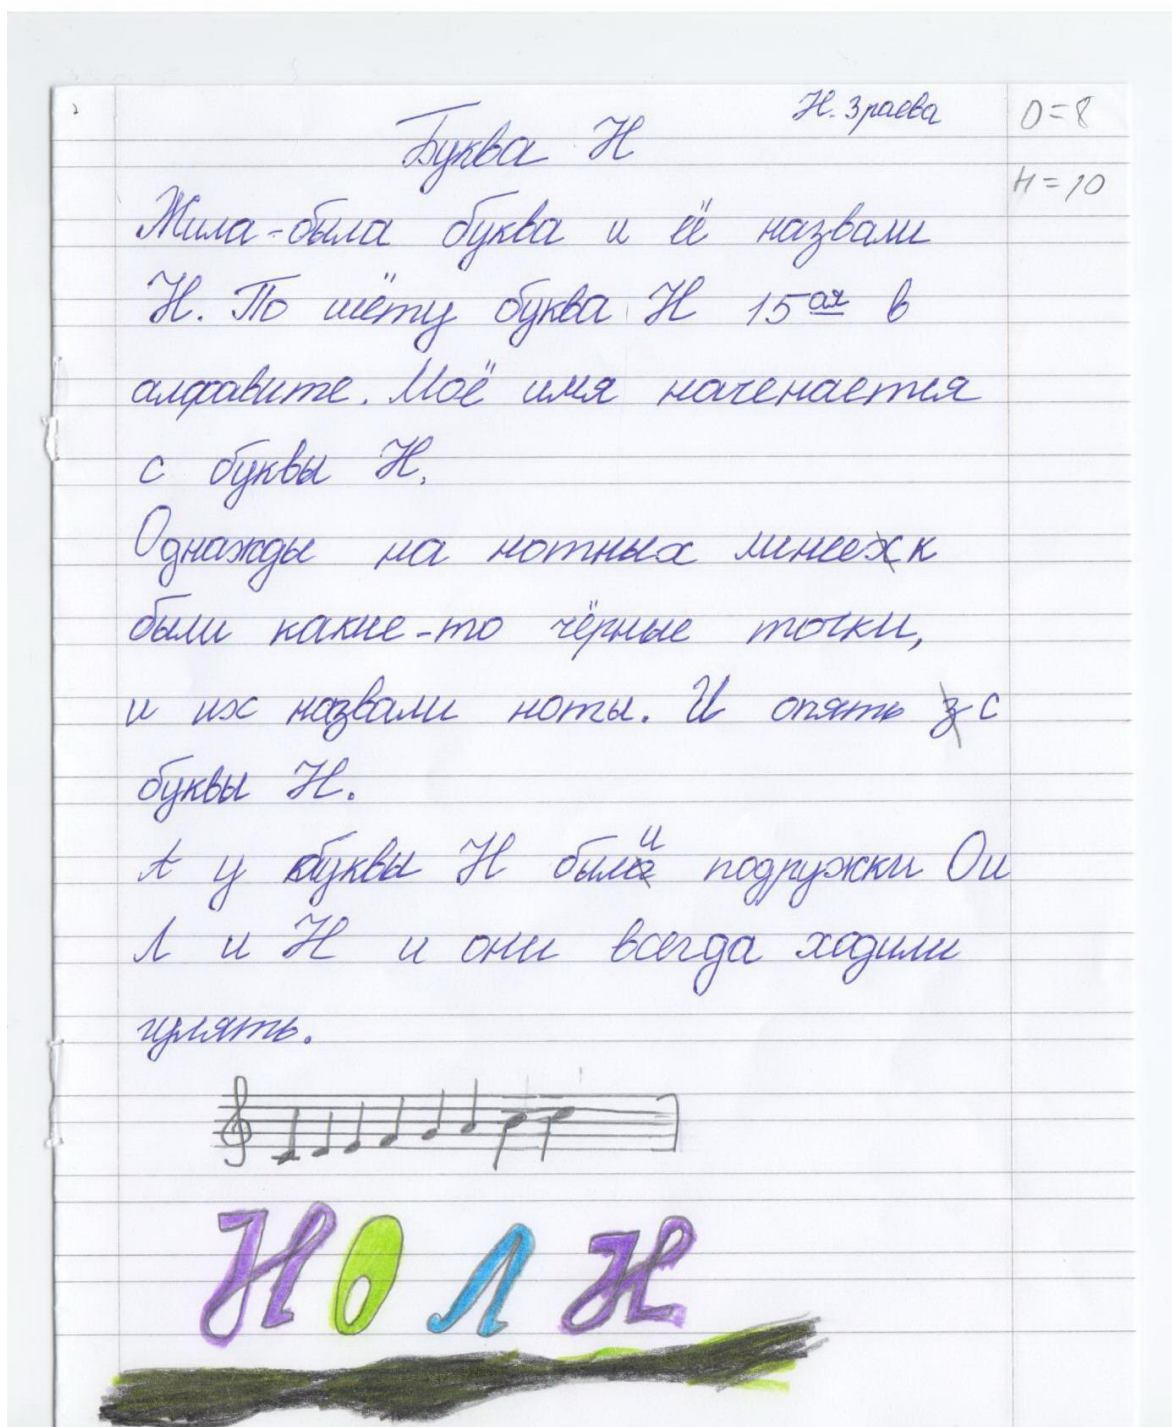 Н. Зраева
О=8
Буква Н
Н=10
Жила-была буква и её назвали
Н. По щёту буква Н 15ая в
алфавите. Моё имя наченается
с буквы Н.
Однажды на нотных линеек
были какие-то чёрные точки,
и их назвали ноты. И опять с
буквы Н.
А у буквы Н были подружки О и
Л и Н и они всегда ходили
гулять.
Н О Л Н